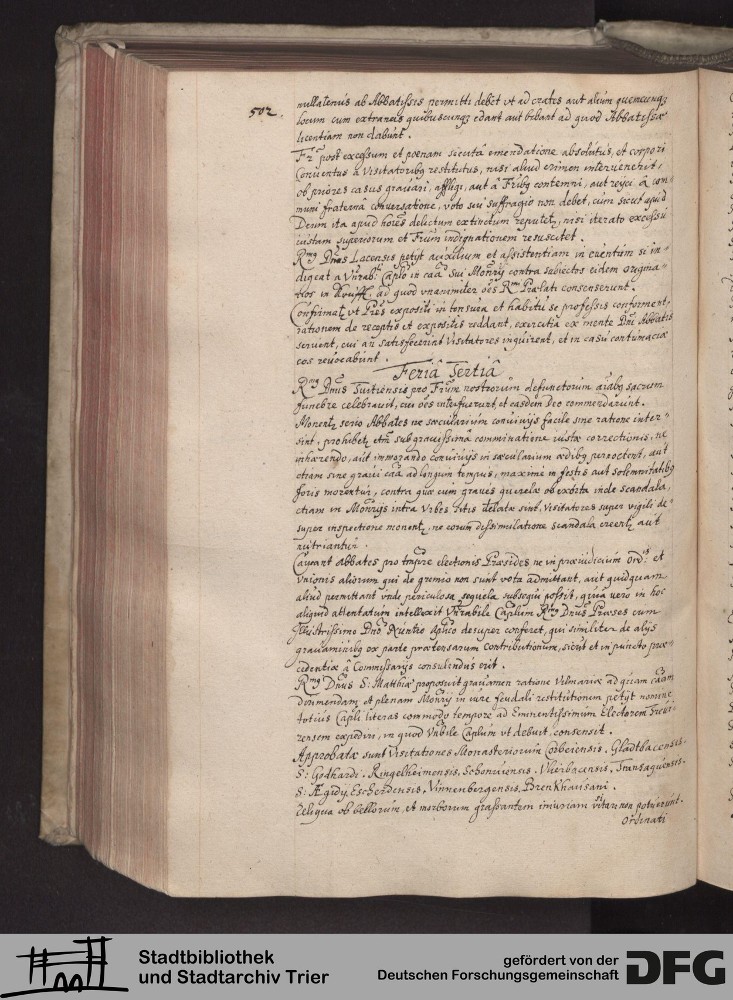 502.
nullatenus ab Abbatissis permitti debet vt ad crates aut alium quemcunq3
locum cum extraneis quibuscunq3 edant aut bibant ad quod Abbatissæ
licentiam non dabunt.
Fr. post excessum et poenam sicuti emendatione absolutus, et corpori
Conventus a Visitatoribq restitutus, nisi aliud crimen interuenerit,
ob priores casus grauari, affligi, aut â Frībq contemni, aut reijci â com-
muni fraterna conuersatione, voto seu suffragio non debet, cum sicut apud
Deum ita apud hoīes delictum extinctum reputet, nisi iterato excessu
iustam superiorum et Frūm indignationem resuscitet.
Rmq Dnūs Lacensis petijt auxilium et assistentiam in euentum si in-
digeat a Vnrabl. Caplo in caā sui Monrij contra subiectos eidem
in ad quod vnanimiter oēs Rmi Prælati consenserunt.
Confirmat vt Prēs expositi in tonsura et habitu se professis conforment,
rationem de receptis et expositis reddant, exercitia ex mente Dni Abbatis
seruent, cui an satisfecerint Visitatores inquirent, et in casu contumaciæ
eos reuocabunt.
Feriâ Tertiâ
Rmq Dnus Tuitiensis pro Frūm nostrorum defunctorum aīabq sacrum
funebre celebrauit, cui oēs interfuerunt, et easdem Deo commendarunt.
Monent serio Abbates ne sæcularium conuiuijs facile sine ratione inter-
sint, prohibet etm sub grauissimâ comminatione iustæ correctionis, ne
inhærendo, aut immorando conuiuijs in sæcularium ædibq pernoctent, aut
etiam sine graui caā ad longum tempus, maximè in festis aut solemnitatibq
foris morentur, contra quæ cum graues querelæ ob exorta inde scandala,
etiam in Monrijs intra Vrbes sitis delatæ sint, Visitatores super vigili de-
super inspectione monent, ne eorum dissimulatione scandala creent aut
nutriantur.
Caueant Abbates pro tmpre electionis Præsides ne in præiudicium Ord: et
Vnionis aliorum qui de gremio non sunt vota admittant, aut quidquam
aliud permittant vnde periculosa sequela subsequi possit, quia vero in hoc
aliquid attentatum intellexit Vnrabile Caplum Rmq Dnus Præses cum
Illustrissimo Dno Nuntio Aplico desuper conferet, qui similiter de alijs
grauaminibq ex parte prætensarum Contributionum, sicut et in puncto præ-
cedentiæ â Commissarijs consulendus erit.
Rmq Dnus S: Matthiæ proposuit grauamen ratione Vilmariæ ad quam caām
dirimendam, et plenam Monrij in iure feudali restitutionem petijt nomine
totius Capli literas commodo tempore ad Eminentissimum Electorem Treui-
rensem expediri, in quod Vnbile Caplum vt debuit, consensit.
Approbatæ sunt Visitationes Monasteriorum Corbeiensis, Gladbacensis.
S: Godhardi, Ringelheimensis, Schonuiensis,
S: Ægidij, Escherdensis, Vinnenbergensis, Brenkhausani.
Reliqua ob bellorum, et morborum grassantem iniuriam vitari non potuerunt.
Ordinati
Stadtbibliothek
und Stadtarchiv Trier
gefördert von der
Deutschen Forschungsgemeinschaft
DFG